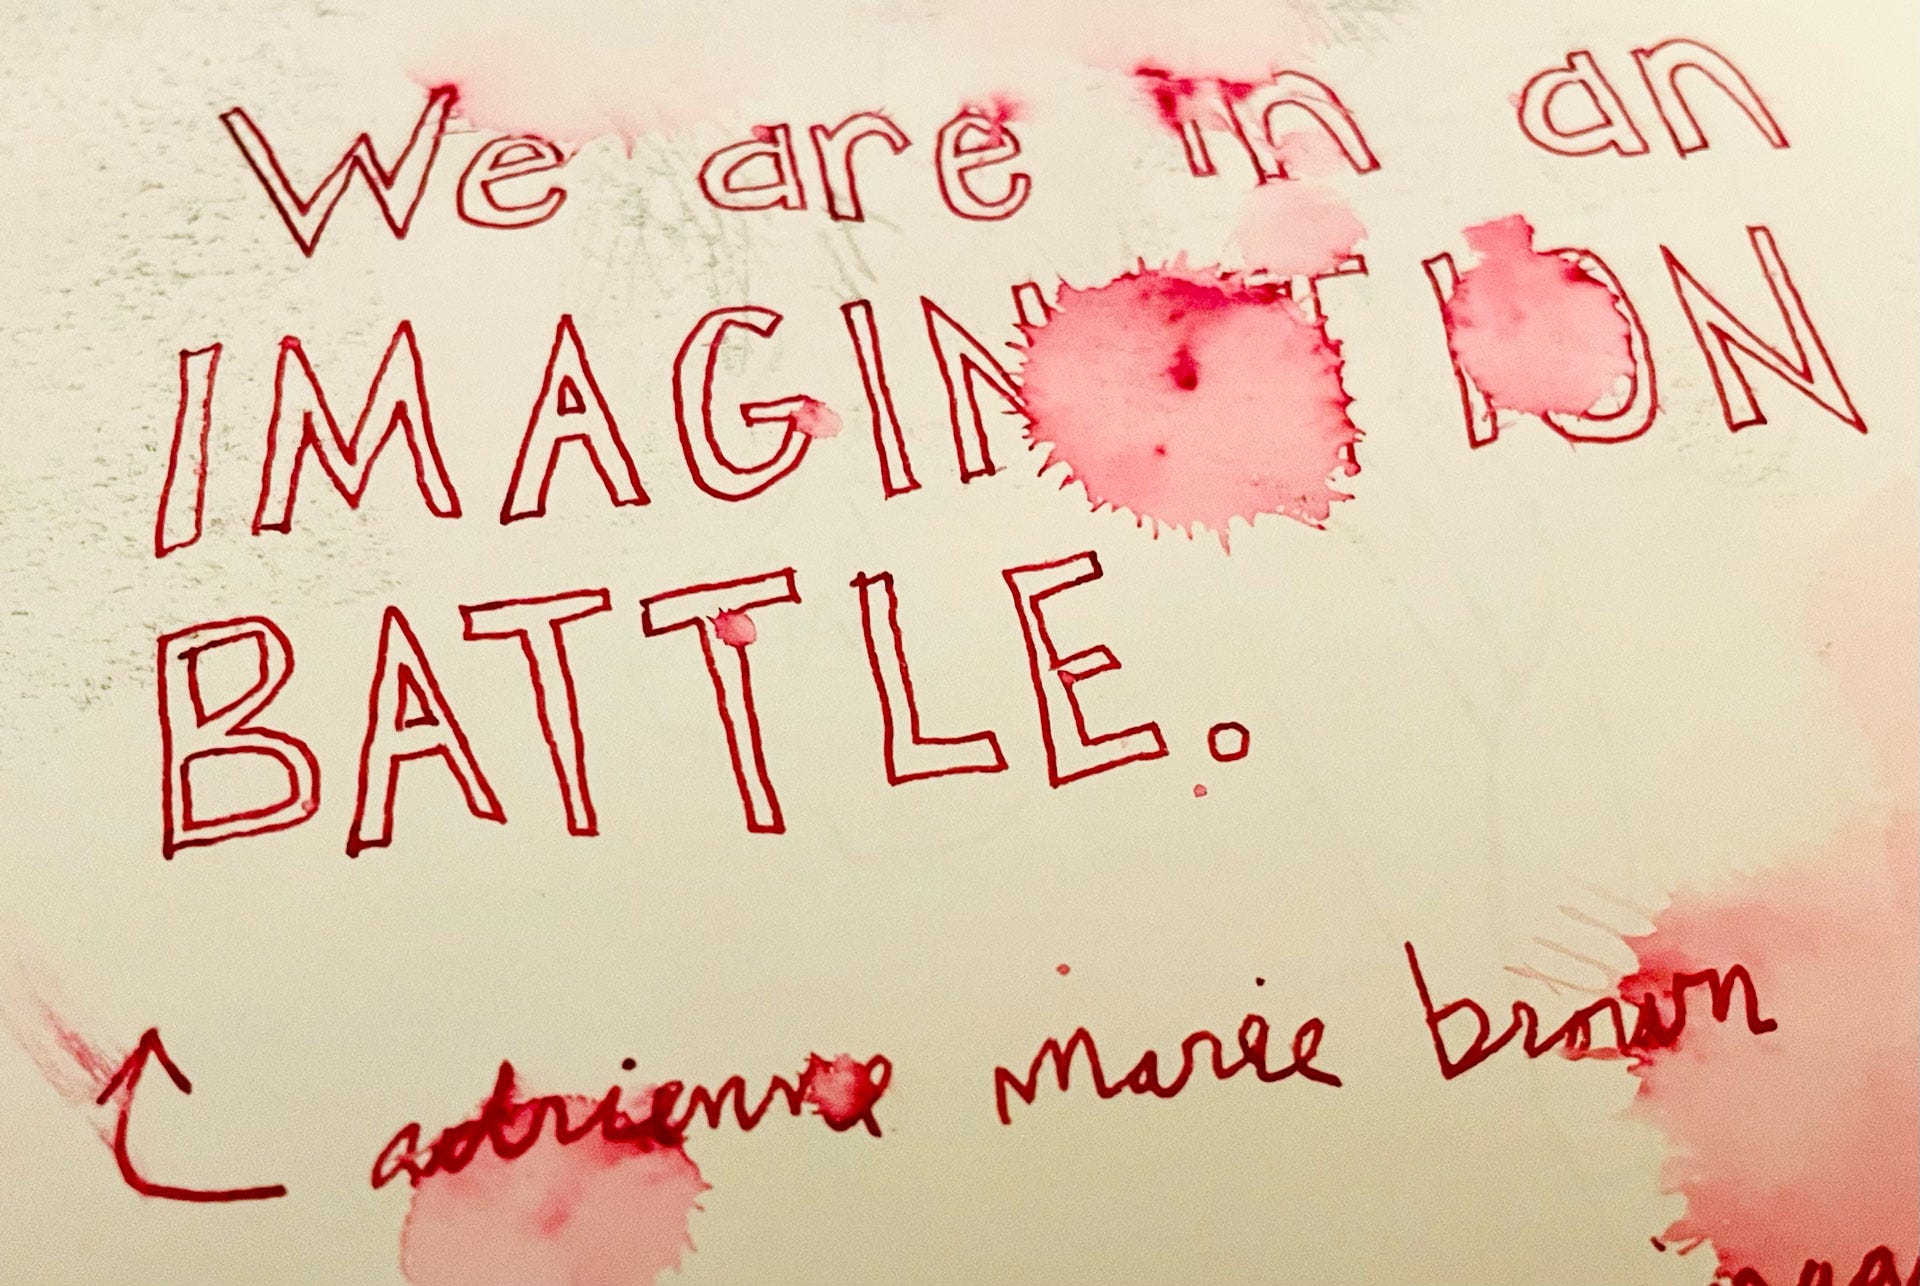 We are in an
IMAGINATION
BATTLE.
adrienne marie brown